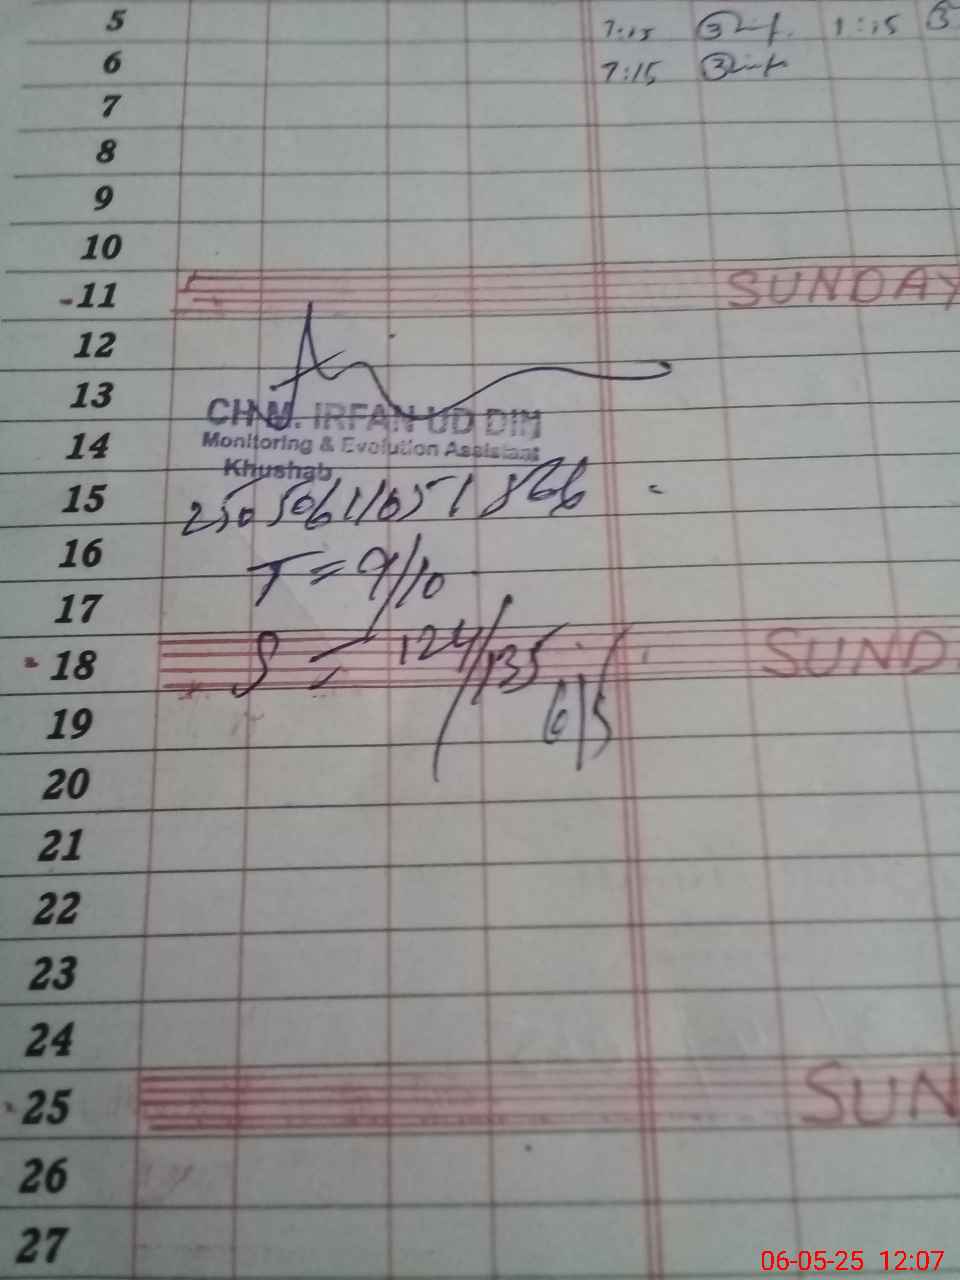 5 7:15 3 1:15 3
6 7:15 3
7
8
9
10
11 SUNDAY
12
13
CH M. IRFAN UD DIN
14
Monitoring & Evolution Assistant
Khushab
15
16
T = 9/10
17
18 SUND
S = 124/135
6/5
19
20
21
22
23
24
25 SUN
26
27
06-05-25 12:07